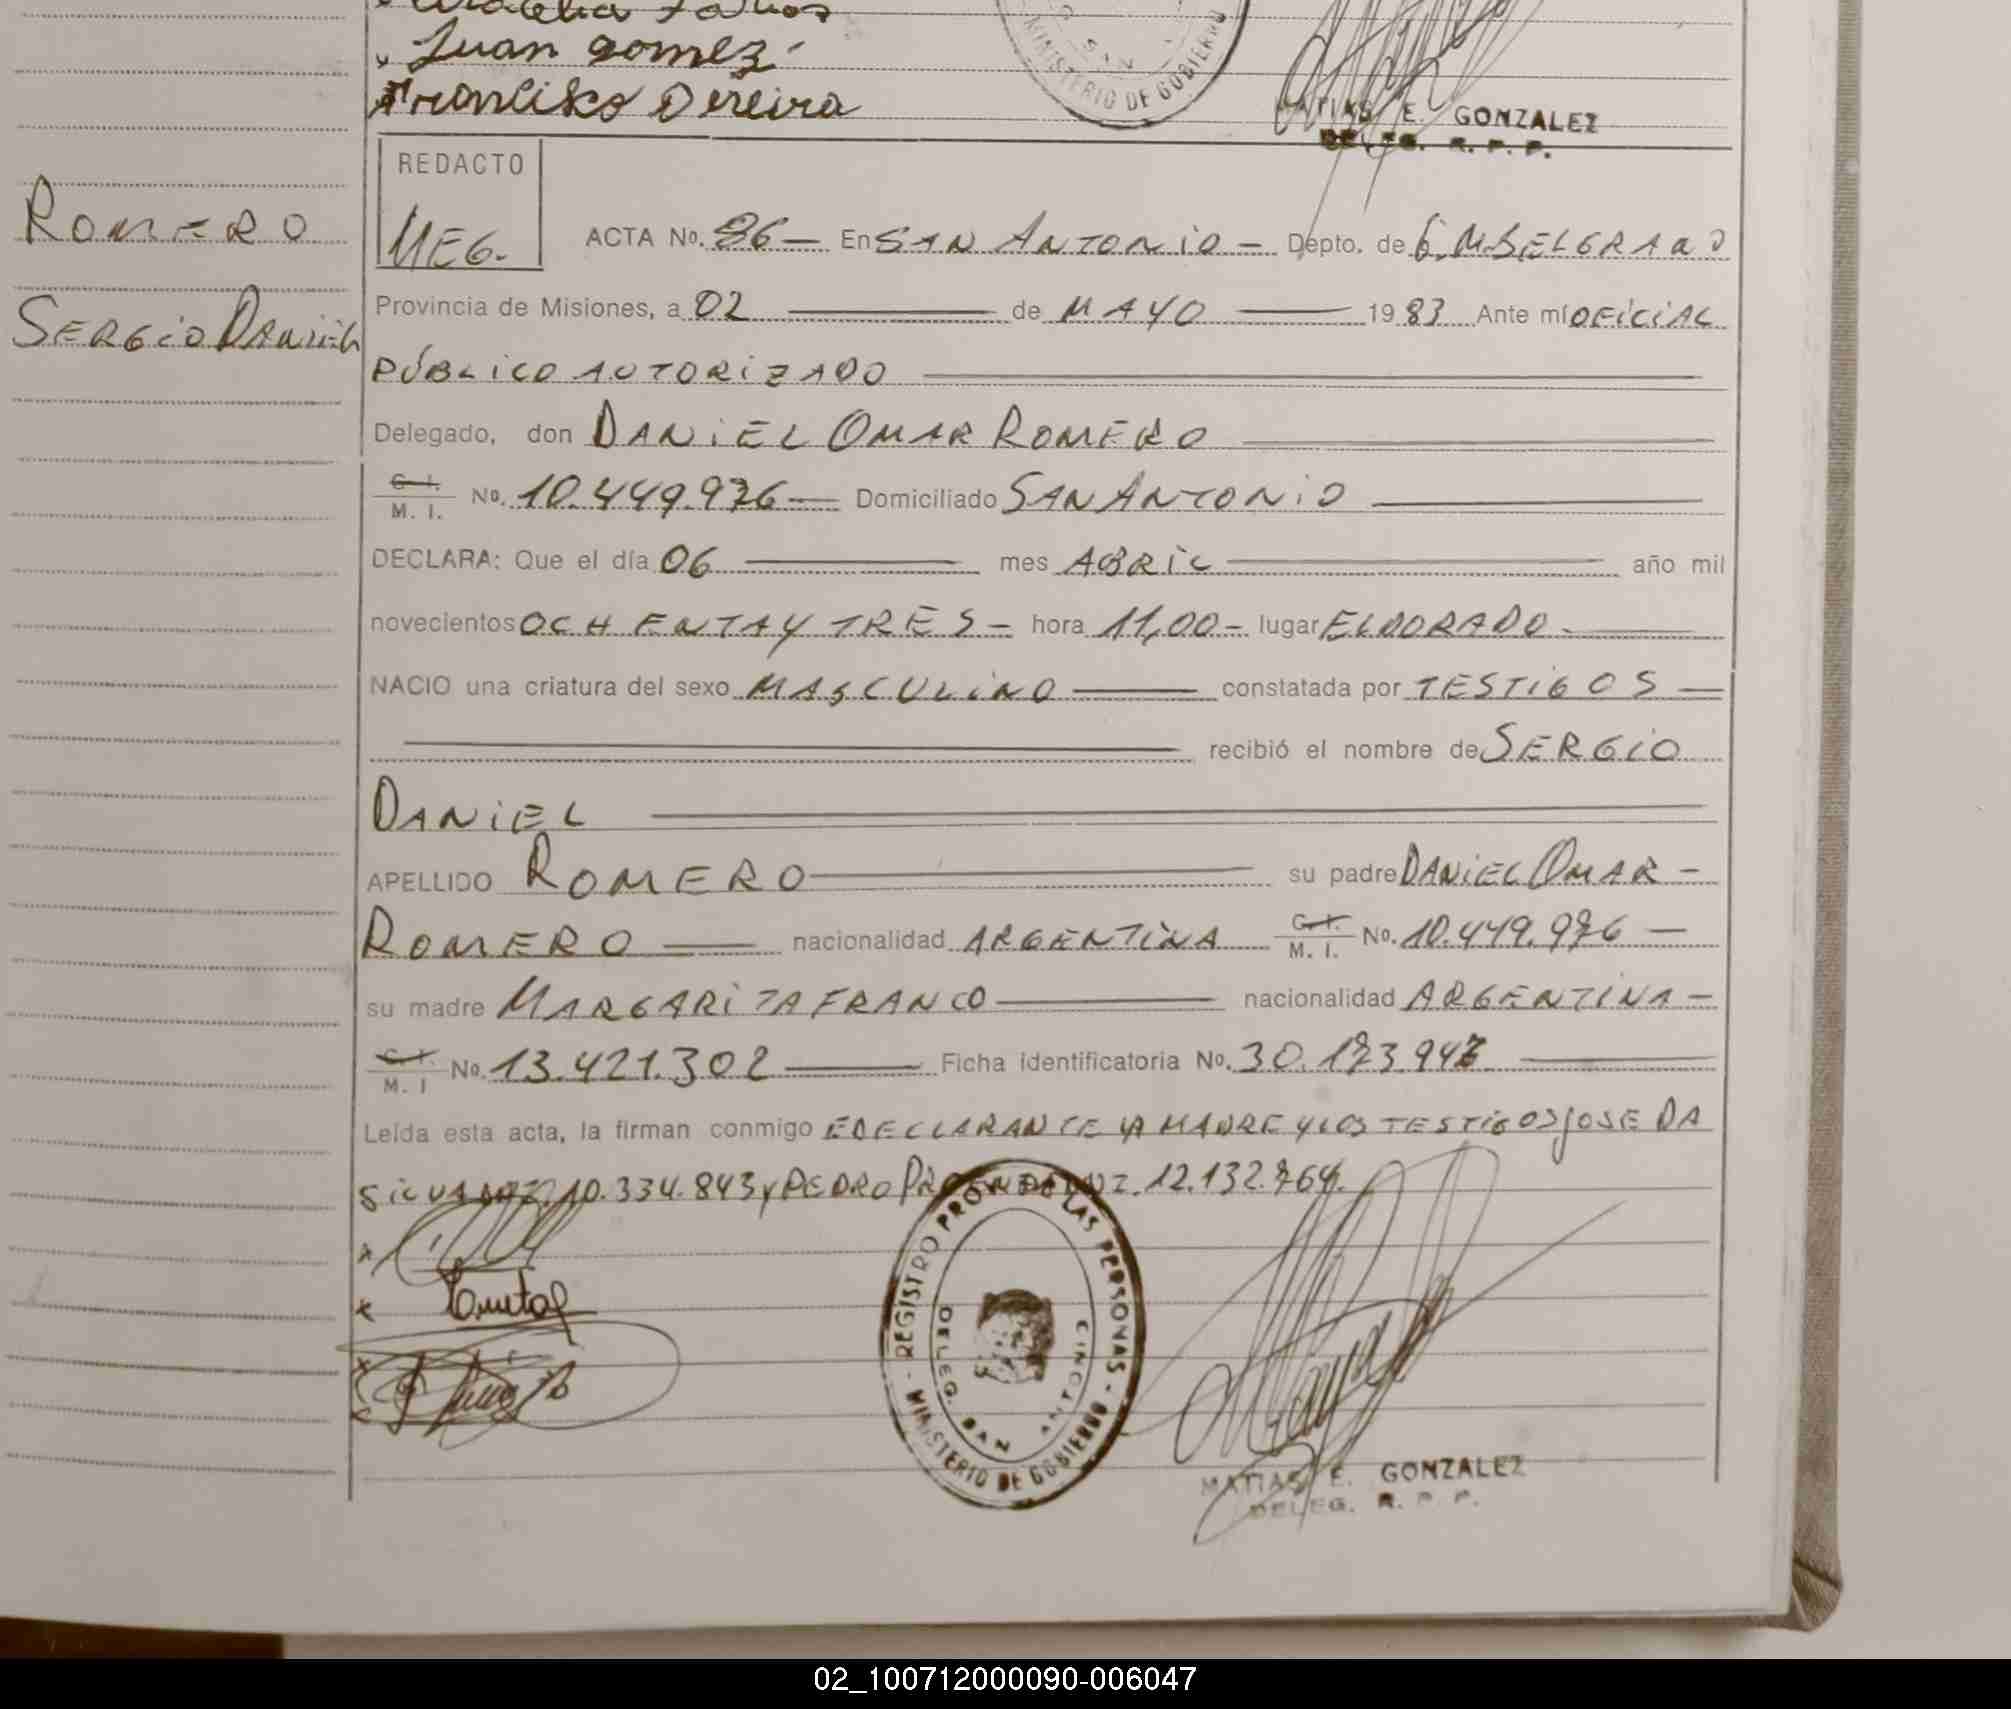 Juan gomez
Francisko Pereira
MINISTERIO DE GOBIERNO
SAN
MATIAS E. GONZALEZ
DELEG. R. P. P.
REDACTO
MEG.
ROMERO
SERGIO DANIEL
ACTA No. 86 — En SAN ANTONIO — Depto. de G. M. BELGRANO
Provincia de Misiones, a 02 — de MAYO — 1983 Ante mí OFICIAL
PÚBLICO AUTORIZADO
Delegado, don DANIEL OMAR ROMERO
C. I. / M. I. No. 10.449.976 — Domiciliado SAN ANTONIO
DECLARA: Que el día 06 — mes ABRIL — año mil
novecientos OCHENTA Y TRES — hora 11,00 — lugar ELDORADO
NACIO una criatura del sexo MASCULINO — constatada por TESTIGOS —
— recibió el nombre de SERGIO
DANIEL
APELLIDO ROMERO — su padre DANIEL OMAR —
ROMERO — nacionalidad ARGENTINA C. I. / M. I. No. 10.449.976 —
su madre MARGARITA FRANCO — nacionalidad ARGENTINA —
C. I. / M. I No. 13.421.302 — Ficha identificatoria No. 30.173.947
Leída esta acta, la firman conmigo E DECLARANTE LA MADRE Y LOS TESTIGOS JOSE DA
SILVA 10.334.843 y PEDRO 12.132.764.
REGISTRO PROV. DE LAS PERSONAS - MINISTERIO DE GOBIERNO -
DELEG. SAN ANTONIO
MATIAS E. GONZALEZ
DELEG. R. P. P.
02_100712000090-006047